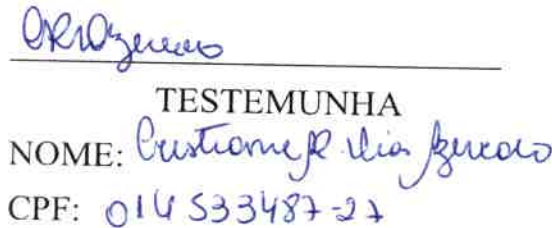 CRDAzeredo
TESTEMUNHA
NOME: Cristiane R. Dias Azeredo
CPF: 014 533487-27